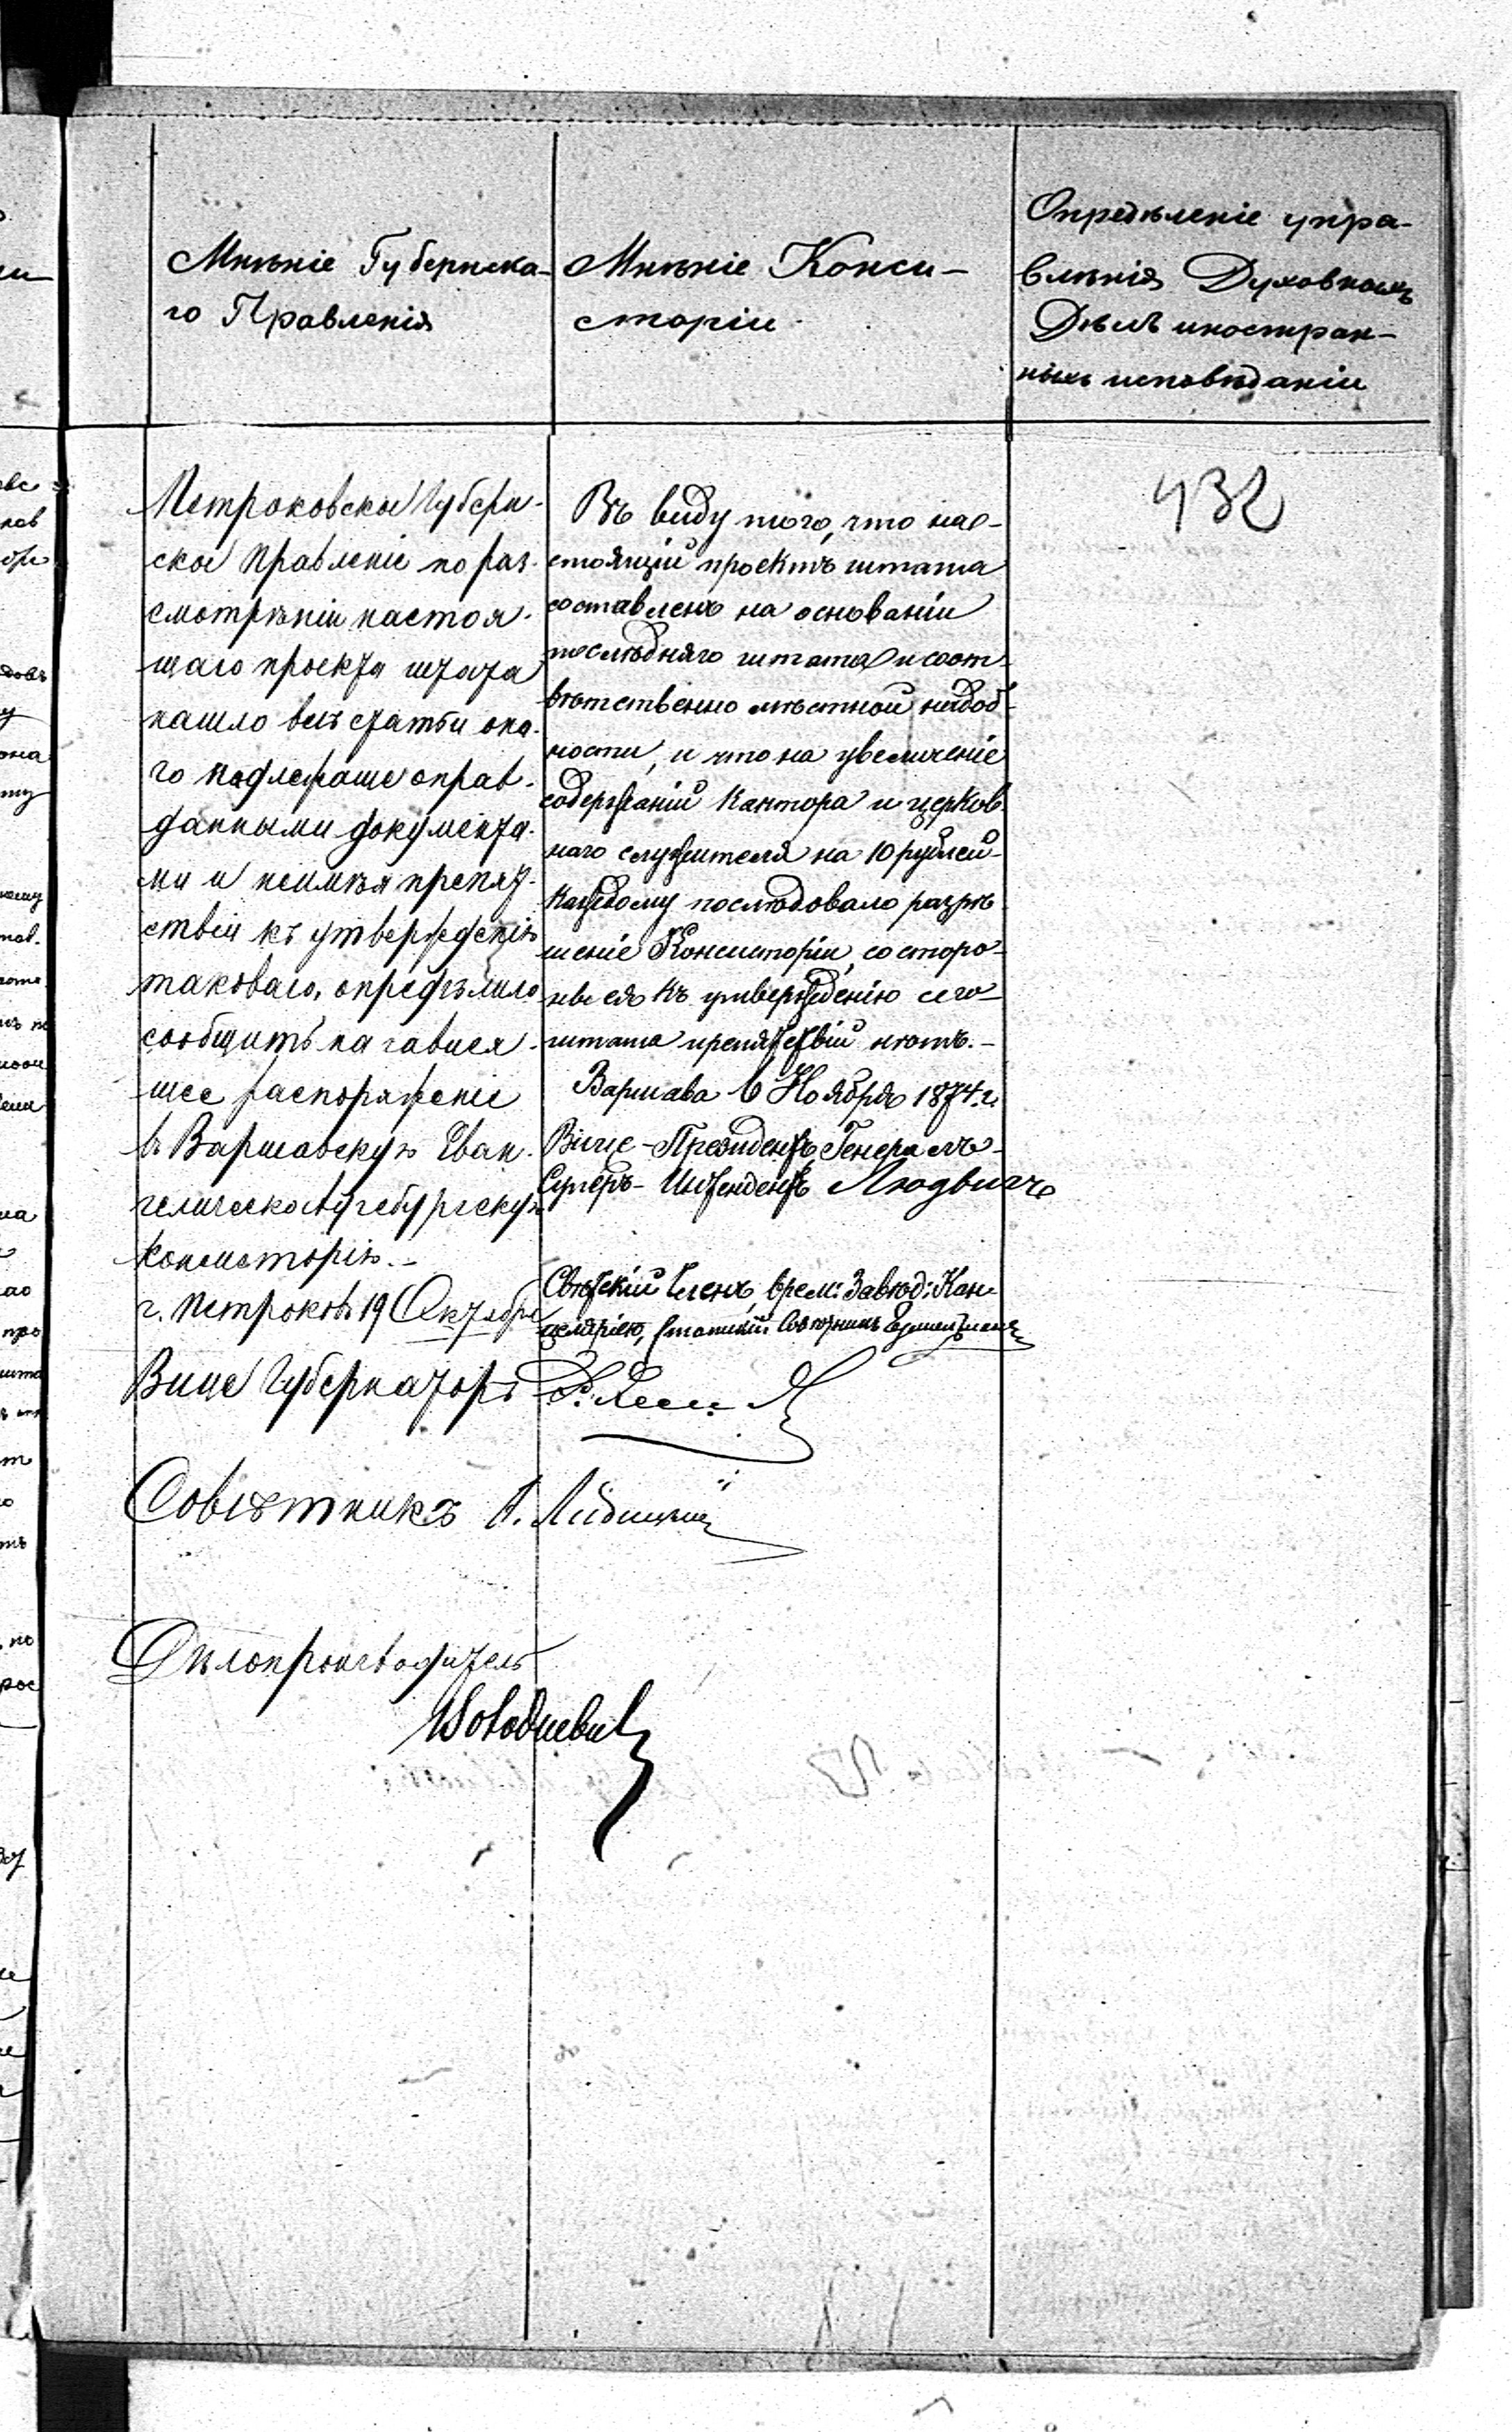 Мнѣніе Губернска-
го Правленія
Мнѣніе Конси-
сторіи
Опредѣленіе упра-
влѣнія Духовныхъ
Дѣлъ иностран-
ныхъ исповѣданіи
432
Петроковское Губерн-
ское Правленіе по раз-
смотрѣніи настоя-
щаго проекта штата
нашло всѣ статьи она-
го надлежаще оправ-
данными документа-
ми и неимѣя препят-
ствія къ утвержденію
таковаго, опредѣлило
сообщить на зависи-
щее распоряженіе
въ Варшавскую Еван-
гелическоаугсбургскую
Консисторію.-
г. Петроковъ 19 Октября
Вице Губернаторъ
Совѣтникъ
Дѣлопроизводитель
Въ виду того, что нас-
тоящій проектъ штата
составленъ на основаніи
послѣдняго штата и соот-
вѣтственно мѣстной надоб-
ности, и что на увеличеніе
содержаній Кантора и церков
наго служителя на 10 рублей
каждому послѣдовало разрѣ-
шеніе Консисторіи, со сторо-
ны ея къ утвержденію сего
штата препятствій нѣтъ.-
Варшава 6 Ноября 1874 г.
Вице-Президентъ, Генералъ-
Суперъ-Интендентъ Людвигъ
Свѣтскій Членъ, врем: Завѣд: Кан-
целяріею, Статскій Совѣтникъ